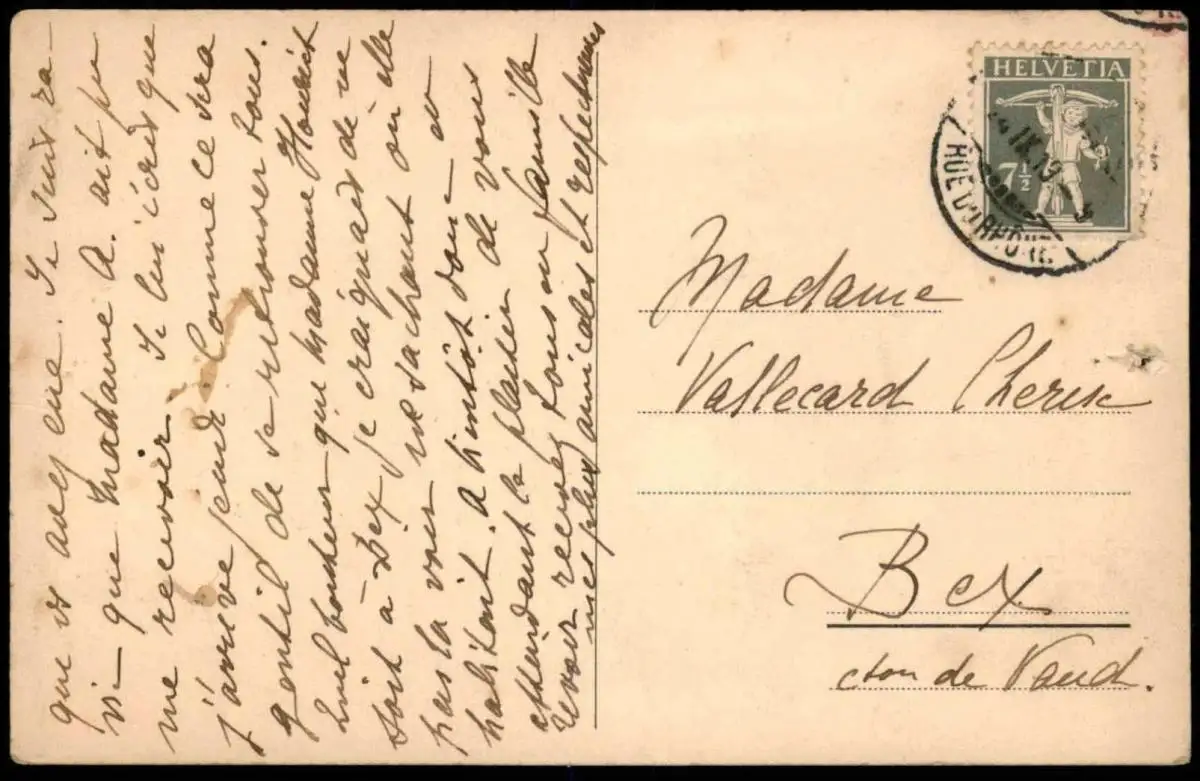 que vs avez eue. Je suis ra-
vie que Madame A. ait pu
me recevoir. Je lui écris que
j'arrive jeudi. Comme ce sera
gentil de se retrouver tous.
Quel bonheur que Madame
soit à Bex je craignais de ne
pas la voir ne sachant où elle
habitait. A bientôt donc et
attendant le plaisir de vous
revoir recevez tous en famille
mes plus amicales et respectueuses
HELVETIA
7½
IX.19
RUE DU RHÔNE
Madame
Vallecard Cherix
Bex
cton de Vaud.